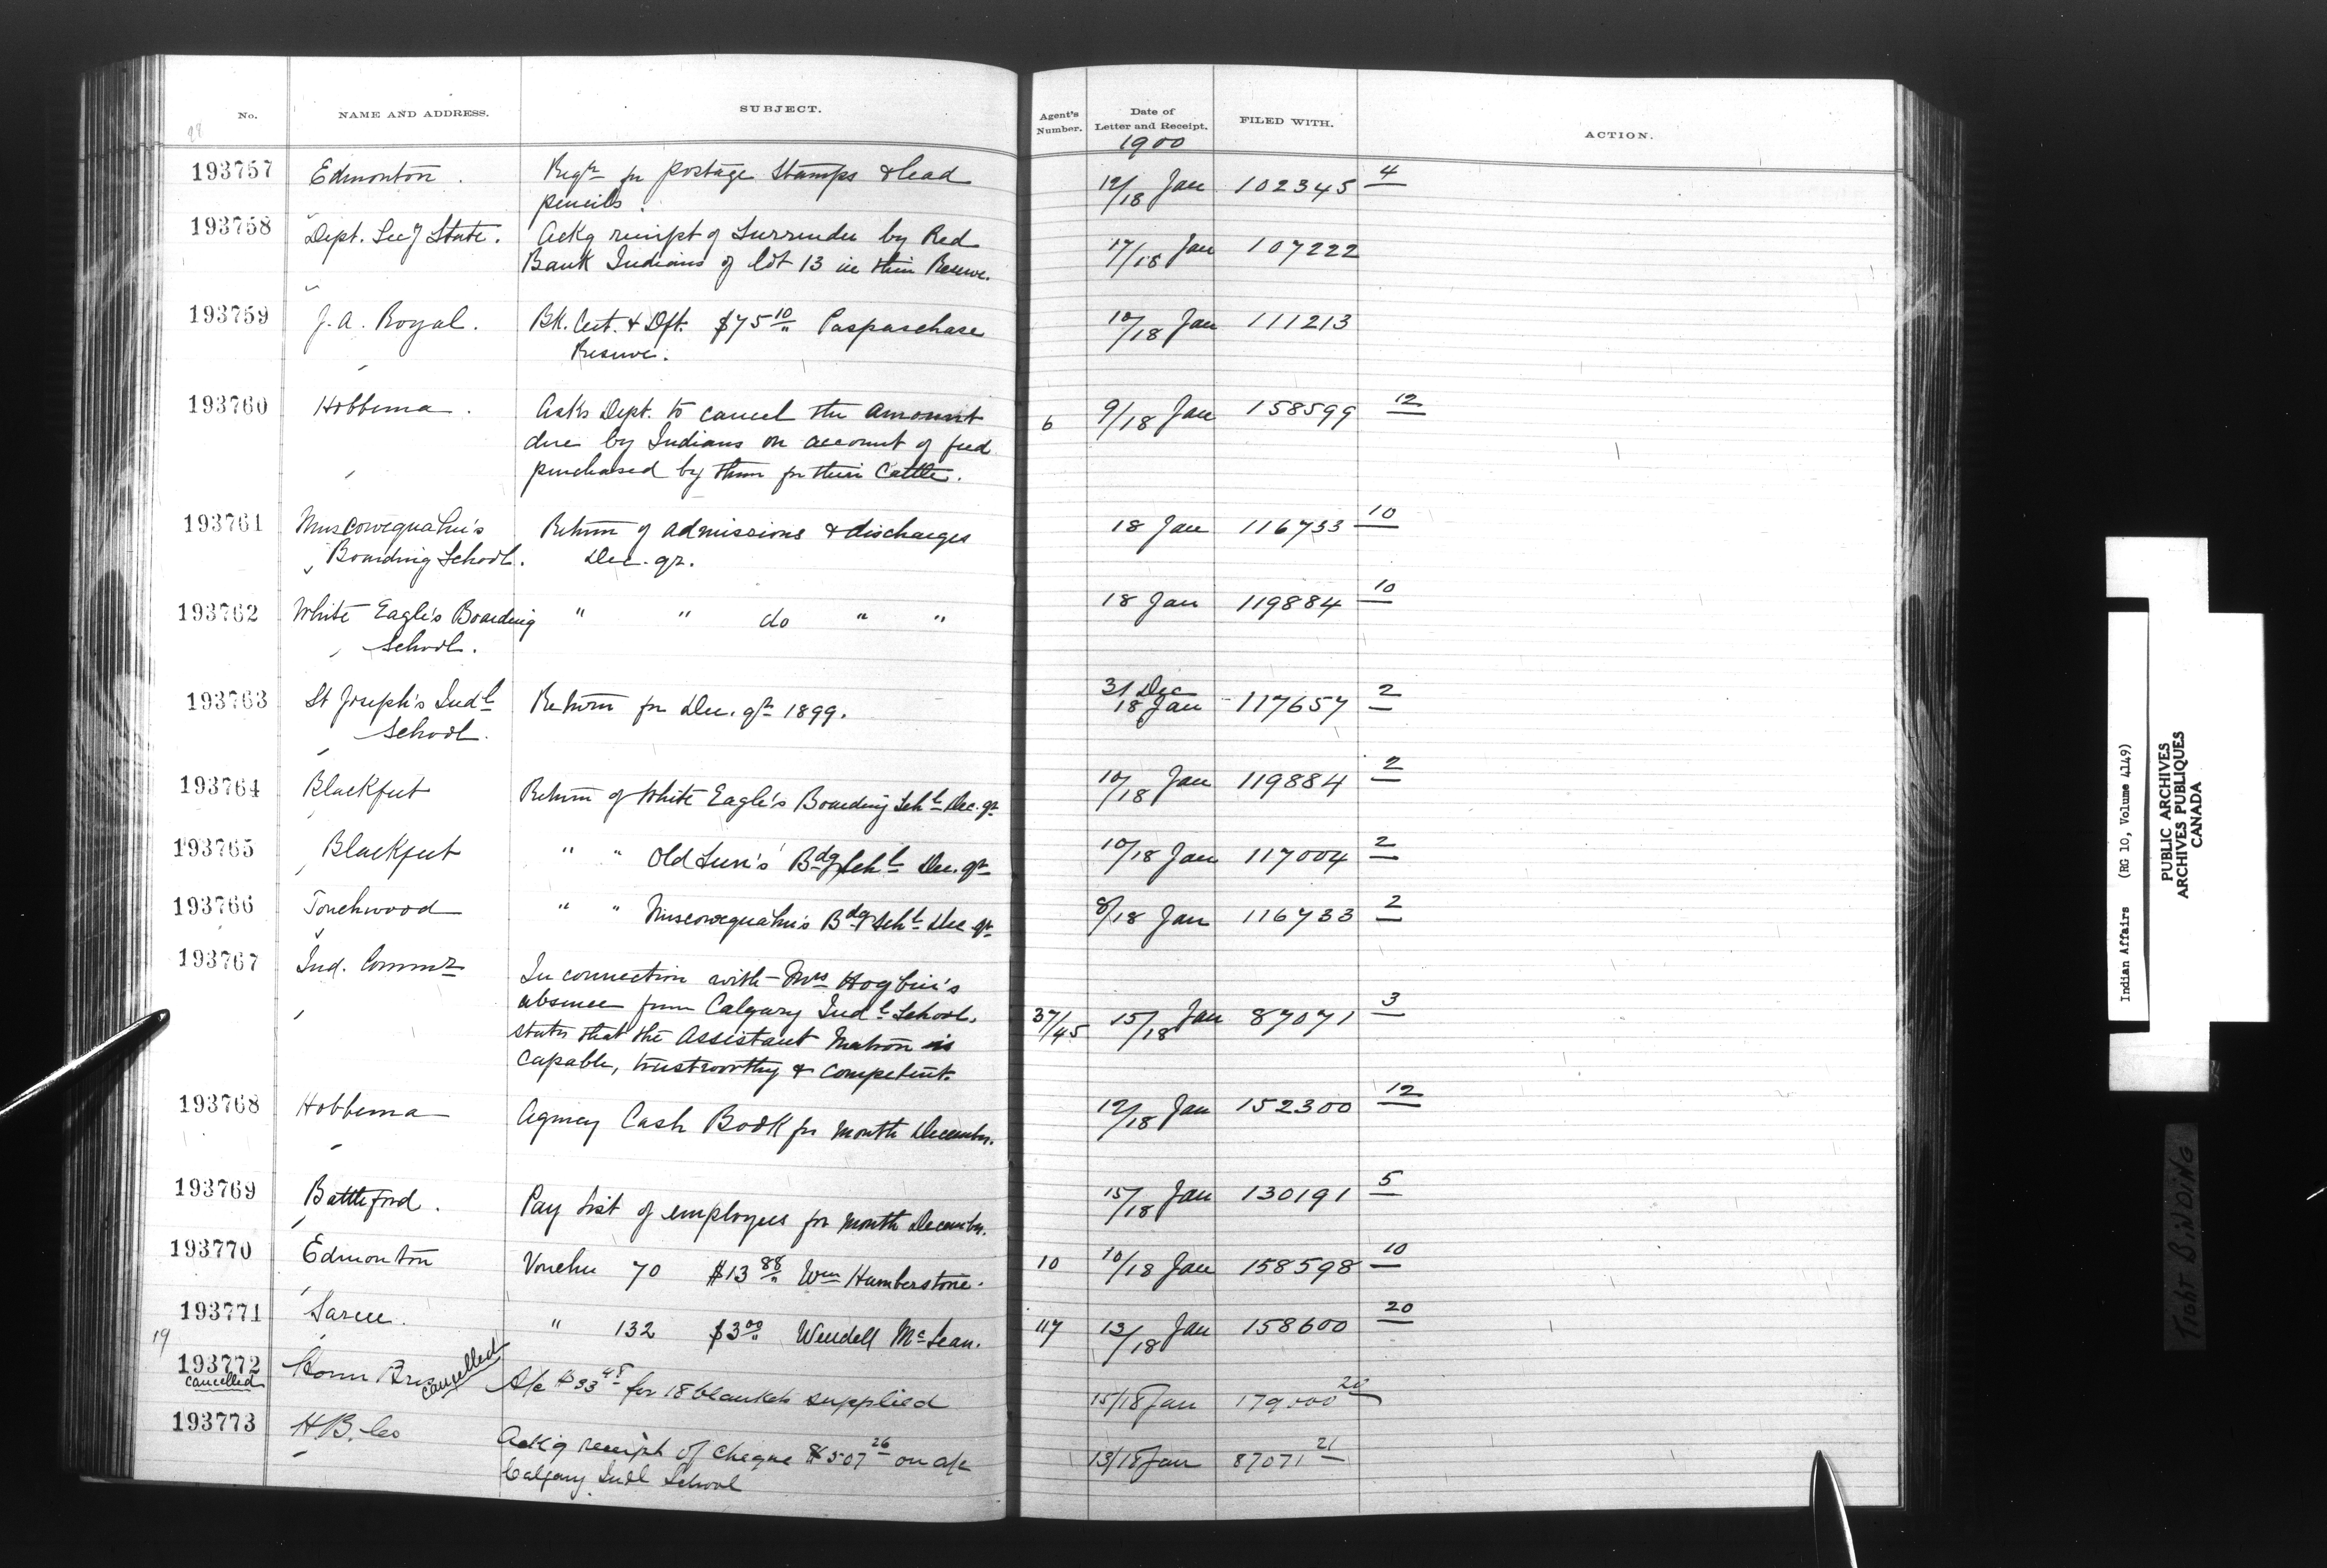 No. NAME AND ADDRESS. SUBJECT. Agent's Number. Date of Letter and Receipt. FILED WITH. ACTION.
1900
193757 Edmonton. Reqn for postage stamps & lead 12/18 Jan 102345 4
pencils.
193758 Dept. Secy State. Ackg receipt of Surrender by Red 17/18 Jan 107222
Bank Indians of lot 13 in their Reserve.
193759 J. A. Royal. Bk. Cert. & Dft. $75 10/" Paspaschase 10/18 Jan 111213
Reserve.
193760 Hobbema. Asks Dept. to cancel the amount 6 9/18 Jan 158599 12
due by Indians on account of feed
purchased by them for their Cattle.
193761 Muscowequahn's Return of admissions & discharges 18 Jan 116733 10
Boarding School. Dec. qr.
193762 White Eagle's Boarding " " do " " 18 Jan 119884 10
School.
193763 St Joseph's Indl Return for Dec. qr 1899. 31 Dec 18 Jan 117657 2
School.
193764 Blackfeet Return of White Eagle's Boarding Schl Dec. qr 10/18 Jan 119884 2
193765 Blackfeet " " Old Sun's Bdg Schl Dec. qr 10/18 Jan 117004 2
193766 Touchwood " " Muscowequahn's Bdg Schl Dec qr 8/18 Jan 116733 2
193767 Ind. Commr In connection with Mrs Hogbin's
absence from Calgary Indl School, 37/45 15/18 Jan 87071 3
states that the Assistant Matron is
capable, trustworthy & competent.
193768 Hobbema Agency Cash Book for month December. 12/18 Jan 152300 12
193769 Battleford. Pay List of employees for month December. 15/18 Jan 130191 5
193770 Edmonton Voucher 70 $13 88/" Wm Humberstone. 10 10/18 Jan 158598 10
193771 Sarcee. " 132 $3 00/" Wendell McLean. 117 13/18 Jan 158600 20
19
193772 Bros cancelled A/c $33 48 for 18 blankets supplied 15/18 Jan 179000 20
cancelled
193773 H.B. Co Ackg receipt of cheque $507 26 on a/c 13/18 Jan 87071 21
Calgary Indl School
Indian Affairs (RG 10, Volume 4149)
PUBLIC ARCHIVES
ARCHIVES PUBLIQUES
CANADA
Tight BINDING